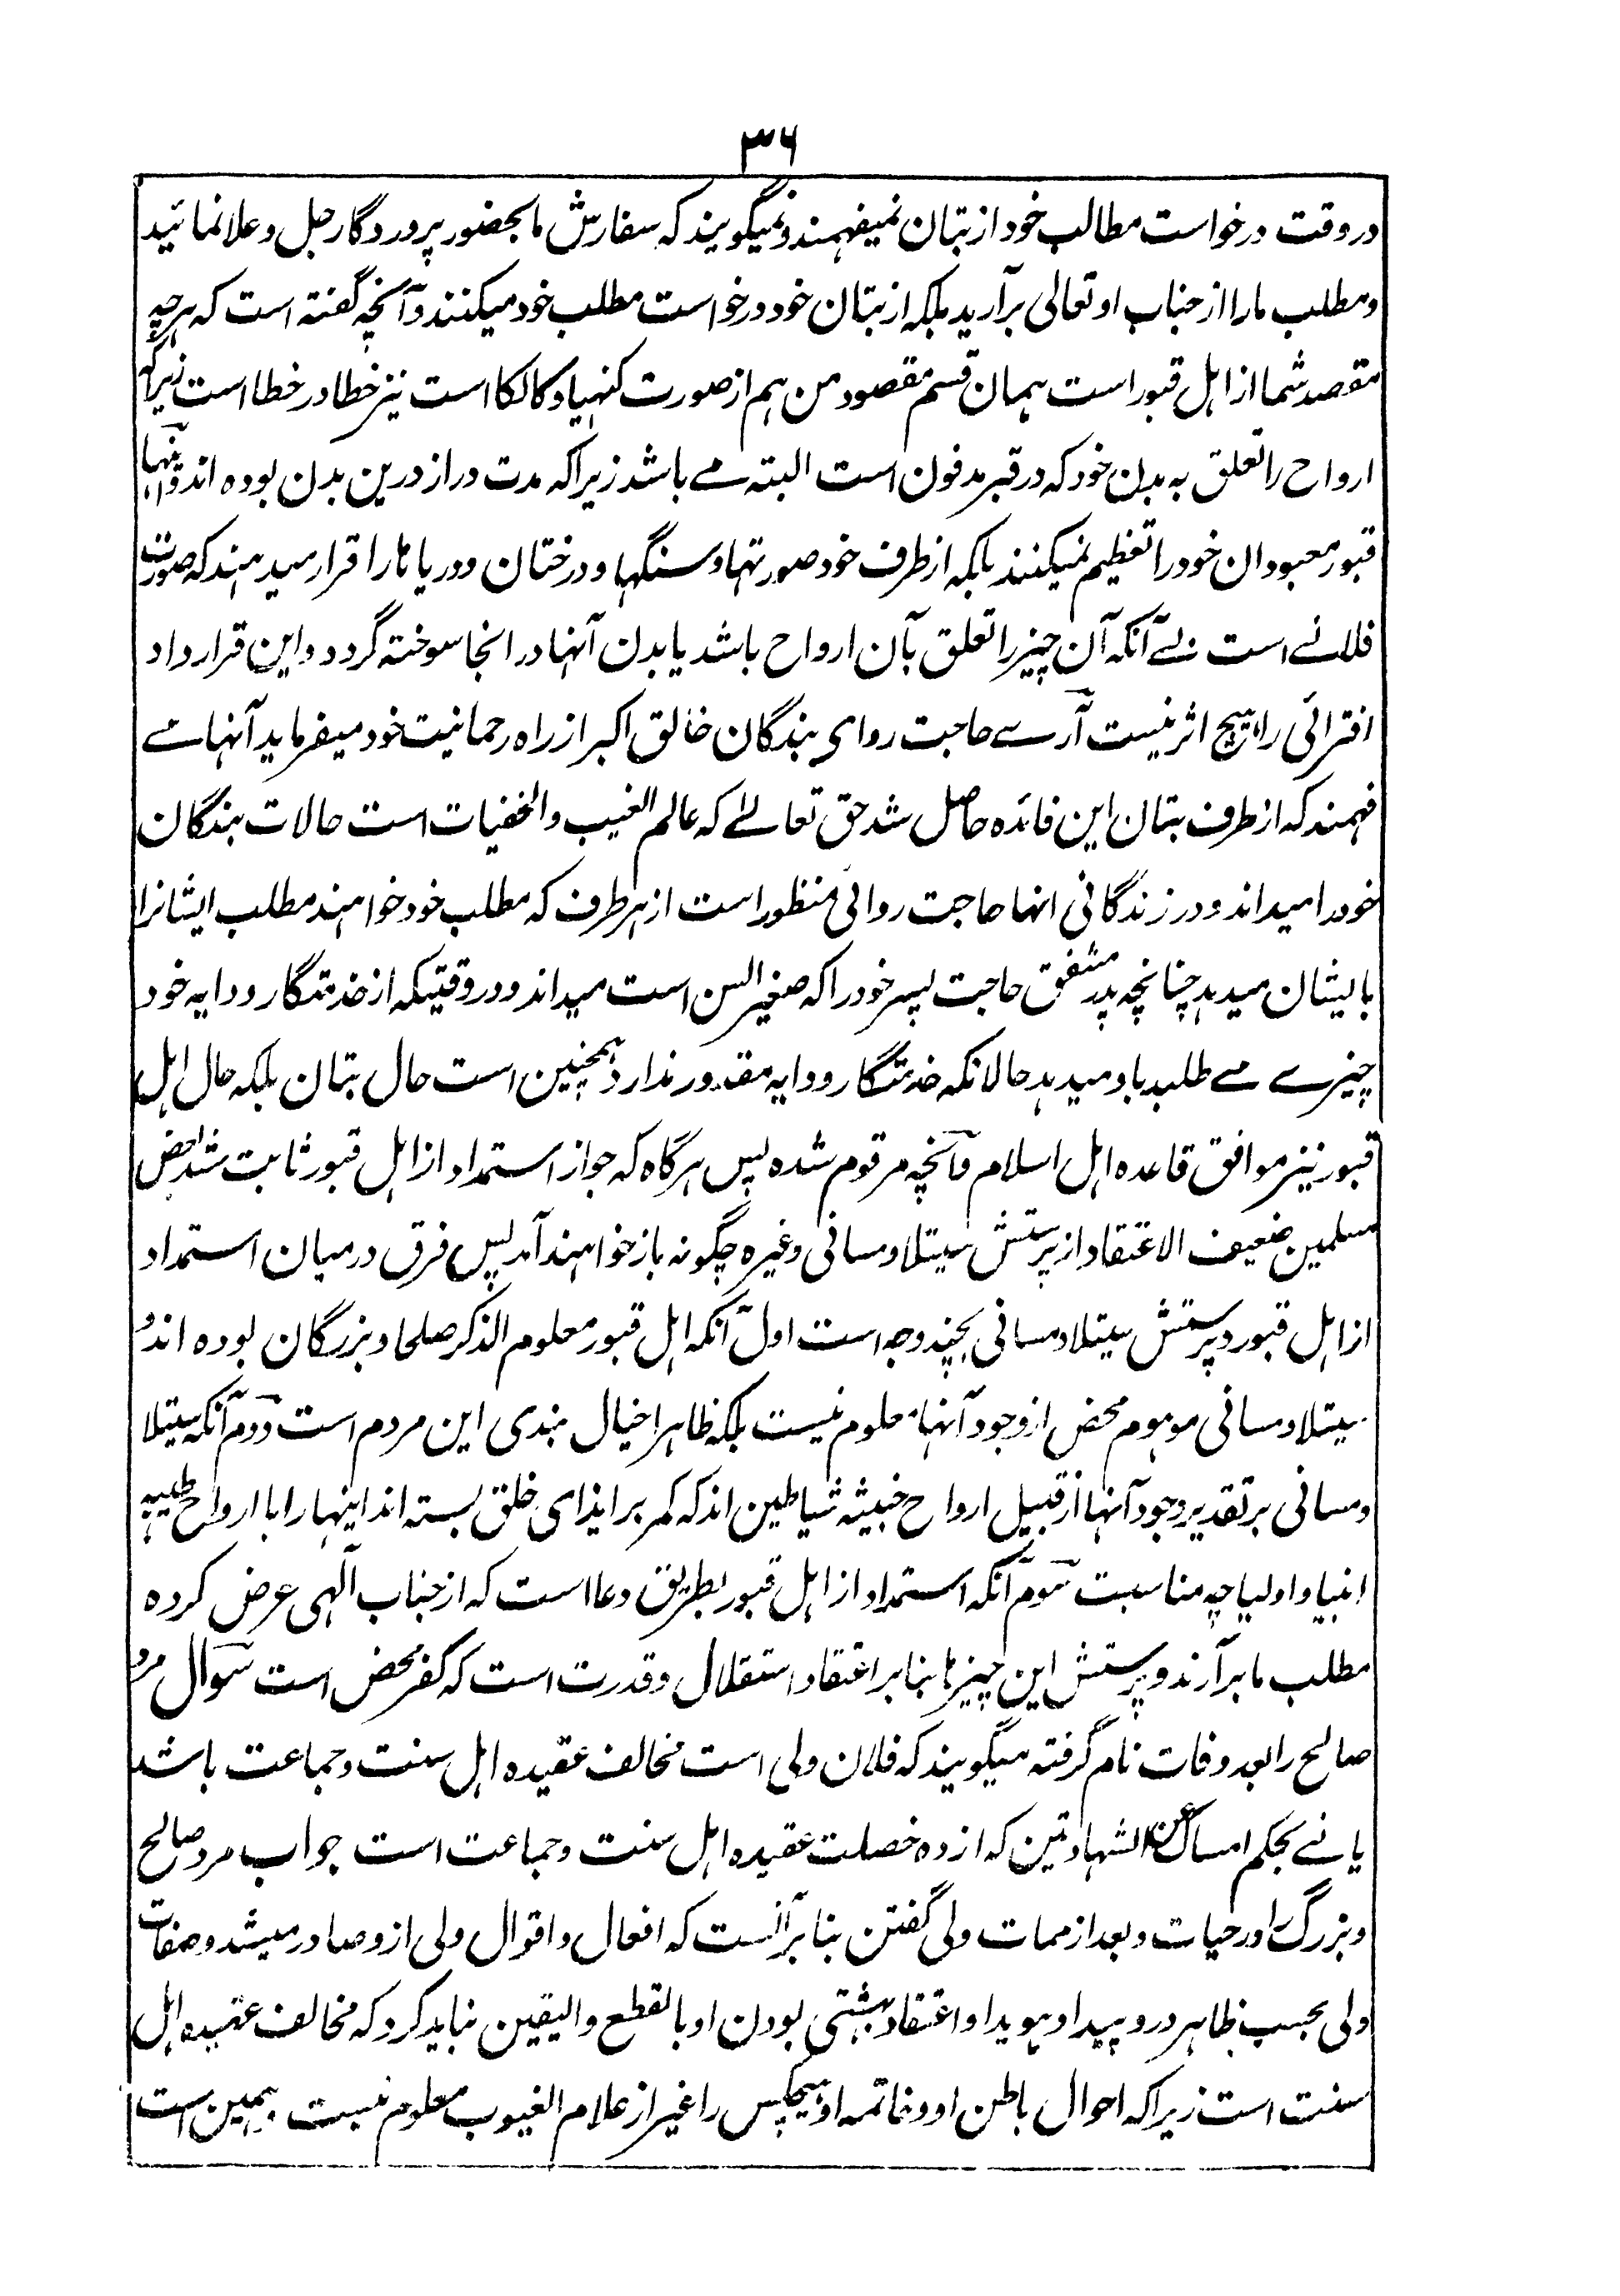 ۳۶
در وقت درخواست مطالب خود از بتان نمیفهمند و نمیگویند که سفارش ما بحضور پروردگار جل و علا نمائید
و مطلب ما را از جناب او تعالی برآرید بلکه از بتان خود درخواست مطلب خود میکنند و آنچه گفته است که هر چه
مقصد شما از اهل قبور است همان قسم مقصود من هم از صورت کنهیا و کالکا است نیز خطا در خطا است زیراکه
ارواح را تعلق به بدن خود که در قبر مدفون است البته مے باشد زیرا که مدت دراز درین بدن بوده اند و اینها
قبور معبودان خود را تعظیم نمیکنند بلکه از طرف خود صورتها و سنگها و درختان و دریاها را قرار میدهند که صورت
فلانے است بے آنکه آن چیز را تعلق بآن ارواح باشد یا بدن آنها در انجا سوخته گردد و این قرارداد
افترائی را هیچ اثر نیست آرے حاجت روای بندگان خالق اکبر از راه رحمانیت خود میفرماید آنها مے
فهمند که از طرف بتان این فائده حاصل شد حق تعالے که عالم الغیب والخفیات است حالات بندگان
خود را میداند و در زندگانی انها حاجت روائی منظور است از هر طرف که مطلب خود خواهند مطلب ایشانرا
بایشان میدهد چنانچه پدر مشفق حاجت پسر خود را که صغیر السن است میداند و در وقتیکه از خدمتگار و دایه خود
چیزے مے طلبد باو میدهد حالانکه خدمتگار و دایه مقدور ندارد همچنین است حال بتان بلکه حال اهل
قبور نیز موافق قاعده اهل اسلام و آنچه مرقوم شده پس هرگاه که جواز استمداد از اهل قبور ثابت شد بعض
مسلمین ضعیف الاعتقاد از پرستش سیتلا و مسانی وغیره چگونه باز خواهند آمد پس فرق درمیان استمداد
از اهل قبور و پرستش سیتلا و مسانی بچند وجه است اول آنکه اهل قبور معلوم الذکر صلحا و بزرگان بوده اند و
سیتلا و مسانی موهوم محض از وجود آنها معلوم نیست بلکه ظاهرا خیال بندی این مردم است دوم آنکه سیتلا
و مسانی بر تقدیر وجود آنها از قبیل ارواح خبیثه شیاطین اند که کمر بر ایذای خلق بسته اند اینها را با ارواح طیبه
انبیا و اولیا چه مناسبت سوم آنکه استمداد از اهل قبور بطریق دعا است که از جناب الهی عرض کرده
مطلب ما برآرند و پرستش این چیزها بنابر اعتقاد استقلال و قدرت است که کفر محض است سوال مرد
صالح را بعد وفات نام گرفته میگویند که فلان ولی است مخالف عقیده اهل سنت و جماعت باشد
یا نے بحکم امساک عن الشهادتین که از ده خصلت عقیده اهل سنت و جماعت است جواب مرد صالح
و بزرگ را در حیات و بعد از ممات ولی گفتن بنابر آنست که افعال و اقوال ولی ازو صادر میشد و صفات
ولی بحسب ظاهر درو پیدا و هویدا و اعتقاد بهشتی بودن او بالقطع والیقین نباید کرد که مخالف عقیده اهل
سنت است زیرا که احوال باطن او و خاتمه او هیچکس را غیر از علام الغیوب معلوم نیست همین است